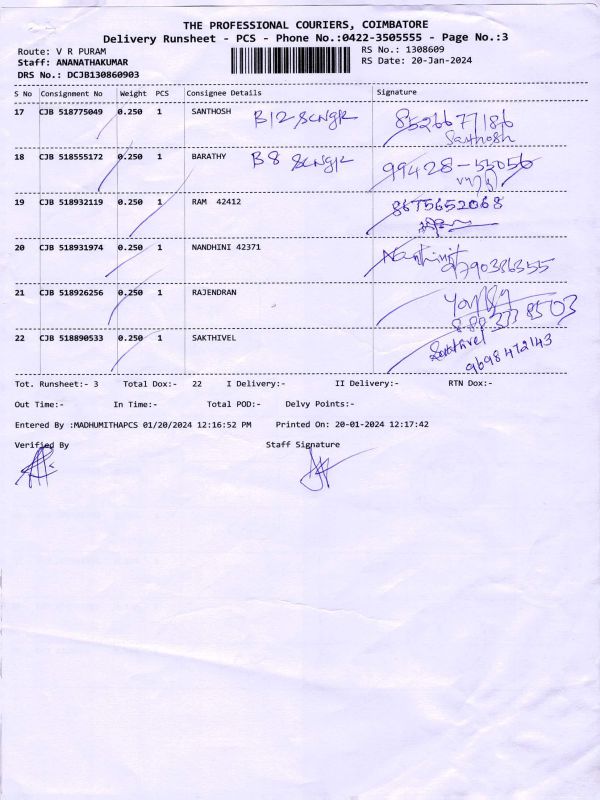 THE PROFESSIONAL COURIERS, COIMBATORE
Delivery Runsheet - PCS - Phone No.:0422-3505555 - Page No.:3
Route: V R PURAM RS No.: 1308609
Staff: ANANATHAKUMAR RS Date: 20-Jan-2024
DRS No.: DCJB130860903
S No Consignment No Weight PCS Consignee Details Signature
17 CJB 518775049 0.250 1 SANTHOSH B12 SCNGR 8526677186
Santhosh
18 CJB 518555172 0.250 1 BARATHY B8 SCNGR 99428-55056
19 CJB 518932119 0.250 1 RAM 42412 8675652068
20 CJB 518931974 0.250 1 NANDHINI 42371 Nanthini
9790386355
21 CJB 518926256 0.250 1 RAJENDRAN
22 CJB 518890533 0.250 1 SAKTHIVEL Sakthivel
9698472143
Tot. Runsheet:- 3 Total Dox:- 22 I Delivery:- II Delivery:- RTN Dox:-
Out Time:- In Time:- Total POD:- Delvy Points:-
Entered By :MADHUMITHAPCS 01/20/2024 12:16:52 PM Printed On: 20-01-2024 12:17:42
Verified By Staff Signature